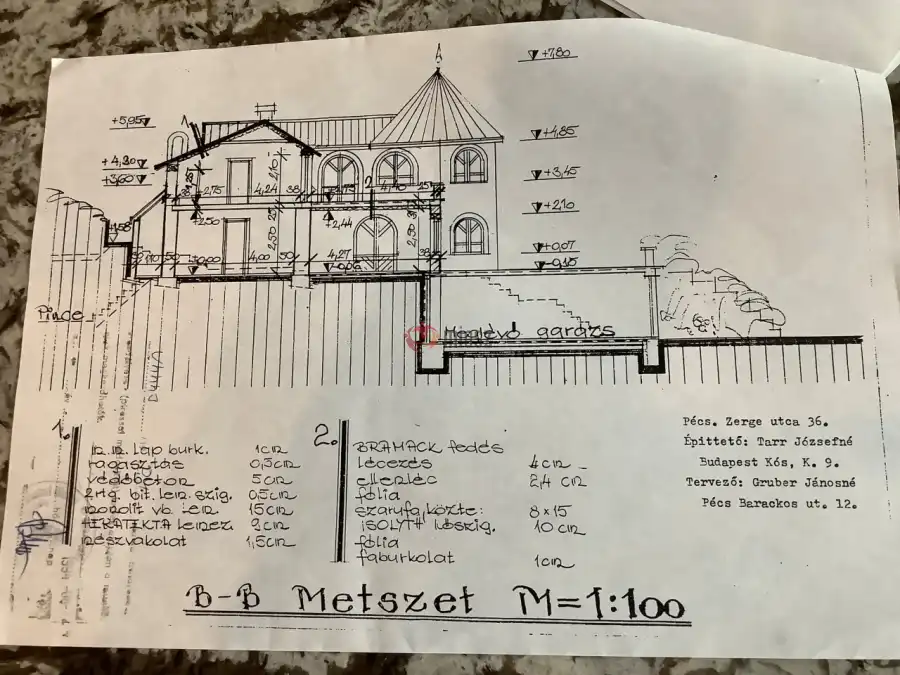 +7,80
+5,95
+4,85
+4,30
+3,60
+3,45
+2,10
+0,07
-0,15
2,10
38 2,75 4,24 38
4,40 25
2
+2,50
2,50
+2,44
2,50
+1,58
50 ±0,00 4,00 50 4,27 -0,06 38
Pince
Meglévő garázs
1.
lap burk. 1cm
ragasztás 0,5cm
védőbeton 5cm
2rtg. bit. lem. szig. 0,5cm
monolit vb. lem 15cm
HERATEKTA lemez 9cm
mészvakolat 1,5cm
2.
BRAMACK fedés
lécezés 4cm
ellenléc 2,4 cm
fólia
szarufa közte: 8x15
ISOLYTH hőszig. 10cm
fólia
faburkolat 1cm
Pécs. Zerge utca 36.
Építtető: Tarr Józsefné
Budapest Kós, K. 9.
Tervező: Gruber Jánosné
Pécs Barackos ut. 12.
B-B Metszet M=1:100